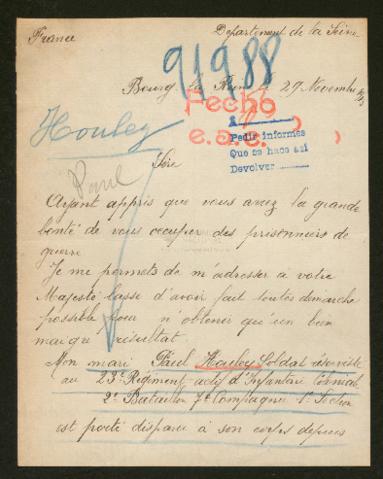 France
Département de la Seine
91988
Bourg la Reine 29 Novembre
Fecho
Houley
Pedir informes
Que se hace así
Devolver
e.a.c.
Sire
Paul
Ayant appris que vous avez la grande
bonté de vous occuper des prisonniers de
guerre
Je me permets de m'adresser à votre
Majesté lasse d'avoir fait toutes démarche
possible pour n'obtenir qu'un bien
maigre résultat
Mon mari Paul Houley Soldat réserviste
au 23e Régiment actif d'Infanterie Coloniale
2e Bataillon 7e Compagnie 1e Section
est porté disparu à son corps depuis